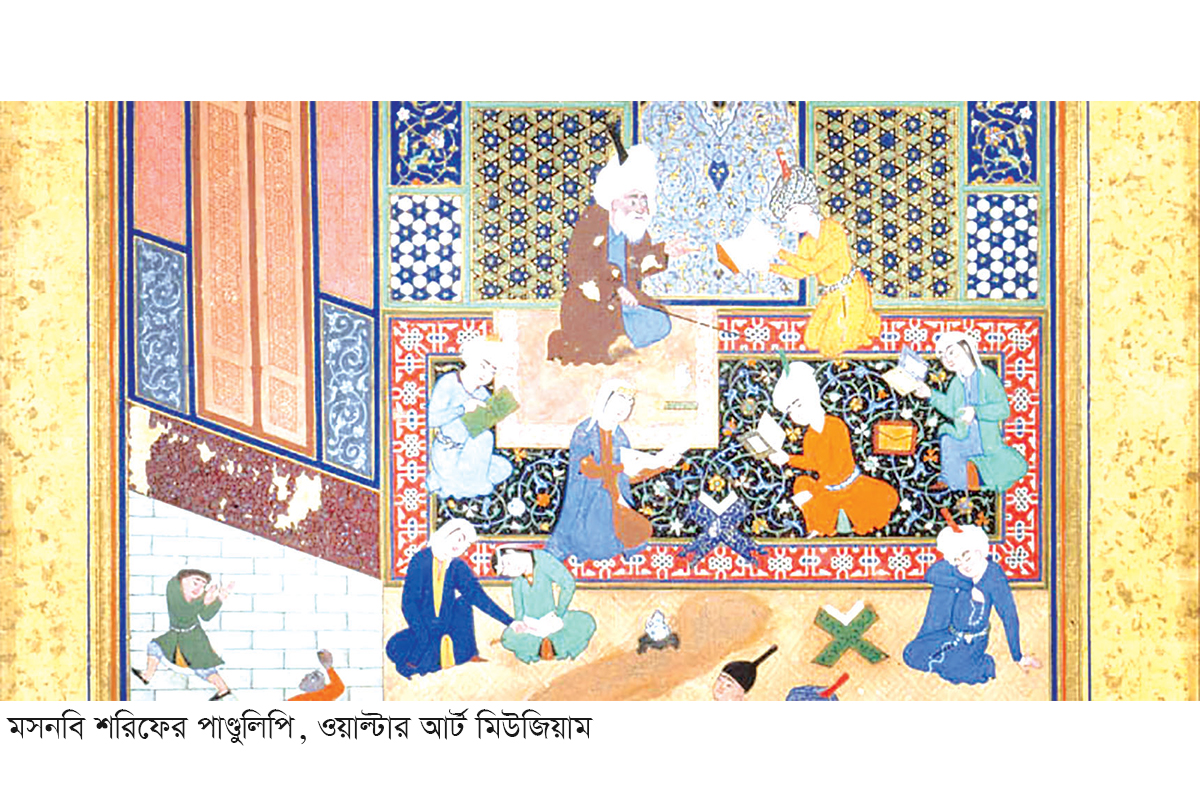 মসনবি শরিফের পাণ্ডুলিপি, ওয়াল্টার আর্ট মিউজিয়াম